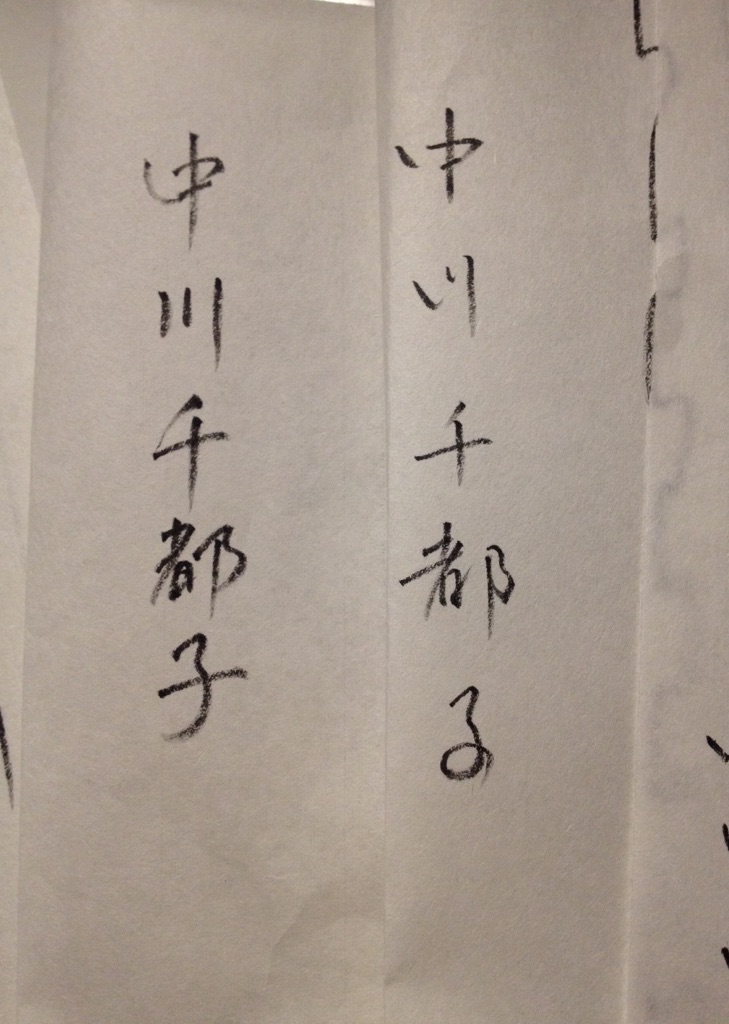 中川千都子
中川千都子